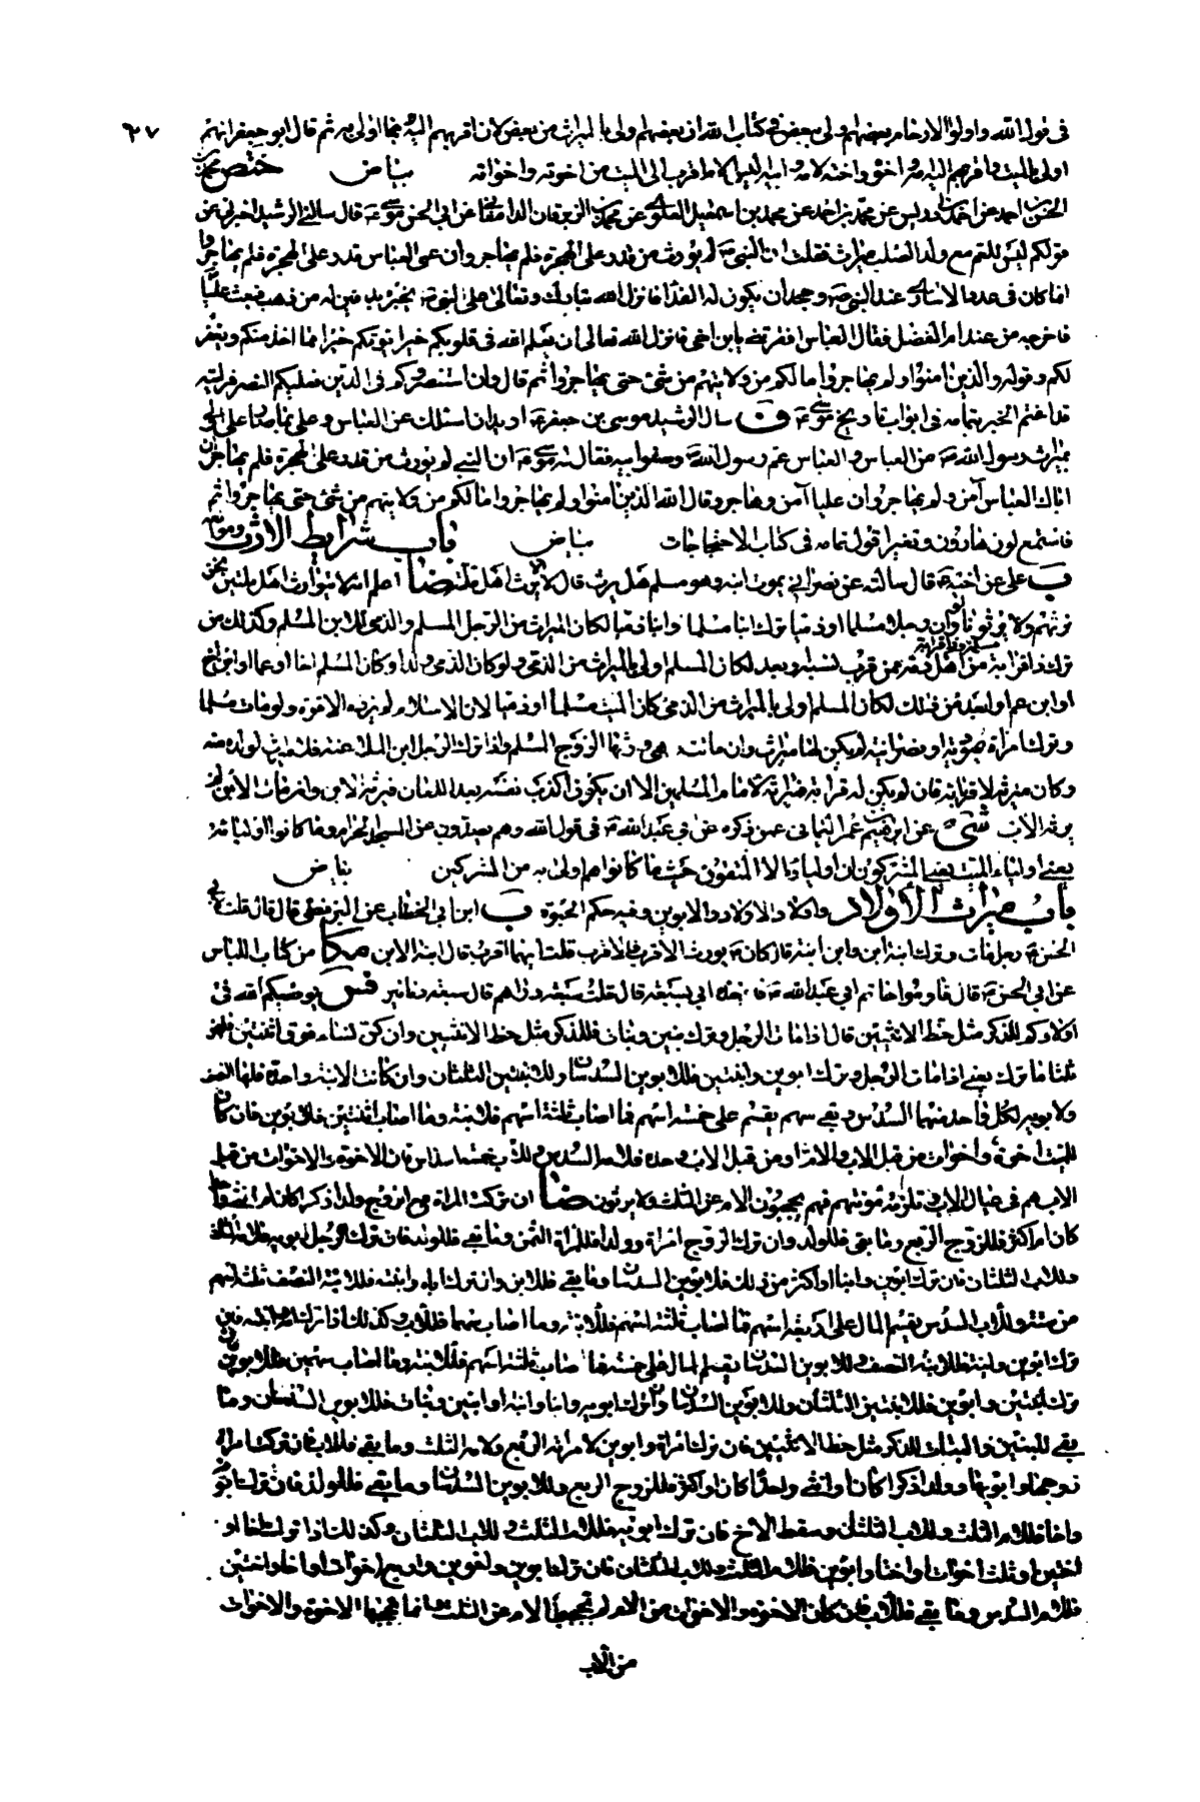 ٢٧
في قول الله واولوا الارحام بعضهم اولى ببعض في كتاب الله ان بعضهم اولى بالميراث من بعض لان اقربهم اليه رحما اولى به ثم قال ابو جعفر انهم
اولى بالميت واقربهم اليه امه او اخوه واخته لامه وابيه اليس الام اقرب الى الميت من اخوته واخواته بياض ختص محمد بن
الحسن بن احمد عن احمد بن ادريس عن محمد بن احمد عن محمد بن اسمعيل العلوي عن محمد بن الزبرقان الدامغاني عن ابي الحسن موسى ع قال سالني الرشيد اخبرني عن
قولكم ليس للعم مع ولد الصلب ميراث فقلت ان النبي ص لم يورث من قدر على الهجرة فلم يهاجر وان عمي العباس قدر على الهجرة فلم يهاجر و
انما كان في عدد الاسارى عند النبي ص وجحد ان يكون له الفداء فانزل الله تبارك وتعالى على النبي ص يخبره بدفين له من ذهب فبعث عليا
فاخرجه من عند ام الفضل فقال العباس افقرتني يابن اخي فانزل الله تعالى ان يعلم الله في قلوبكم خيرا يؤتكم خيرا مما اخذ منكم ويغفر
لكم وقوله والذين امنوا ولم يهاجروا ما لكم من ولايتهم من شئ حتى يهاجروا ثم قال وان استنصروكم في الدين فعليكم النصر فرايته
قد اغتم الخبر بتمامه في ابواب تاريخ موسى ع ق سال الرشيد موسى بن جعفر ع اريد ان اسئلك عن العباس وعلي بما صار علي اولى
بميراث رسول الله ص من العباس والعباس عم رسول الله ص وصنو ابيه فقال له موسى ع ان النبي لم يورث من قدر على الهجرة فلم يهاجر ان
اباك العباس آمن ولم يهاجر وان عليا آمن وهاجر وقال الله الذين امنوا ولم يهاجروا ما لكم من ولايتهم من شئ حتى يهاجروا ثم
فاستمع لون هارون وتغير اقول تمامه في كتاب الاحتجاجات بياض باب شرايط الارث وموانعه
ب علي عن اخيه ع قال سالته عن نصراني يموت ابنه وهو مسلم هل يرث قال لا يرث اهل ملة ضا اعلم انه لا يتوارث اهل ملتين نحن
نرثهم ولا يرثونا ولو ان رجلا مسلما او ذميا ترك ابنا مسلما وابنا ذميا لكان الميراث من الرجل المسلم والذمي للابن المسلم وكذلك من
ترك ذا قرابة مسلمة وذا قرابة من اهل ذمة ممن قرب نسبه او بعد لكان المسلم اولى بالميراث من الذمي ولو كان الذمي ولدا وكان المسلم اخا او عما او ابن اخ
او ابن عم او ابعد من ذلك لكان المسلم اولى بالميراث من الذمي كان الميت مسلما او ذميا لان الاسلام لم يزده الا قوة ولو مات مسلم
وترك امراة يهودية او نصرانية لم يكن لها ميراث وان ماتت هي ورثها الزوج المسلم واذا ترك الرجل ابن الملاعنة فلا ميراث لولده منه
وكان ميراثه لاقربائه فان لم يكن له قرابة فميراثه لامام المسلمين الا ان يكون اكذب نفسه بعد اللعان فيرثه الابن وان مات الابن لم
يرثه الاب شى عن ابراهيم بن عمر اليماني عمن ذكره عن ابي عبد الله ع في قول الله وهم يصدون عن المسجد الحرام وما كانوا اولياءه
يعني اولياء البيت يعني المشركون ان اولياؤه الا المتقون حيث ما كانوا هم اولى به من المشركين بياض
باب ميراث الاولاد واولاد الاولاد والابوين وفيه حكم الحبوة ب ابن ابي الخطاب عن البزنطي قال قال قلت لابي
الحسن ع رجل مات وترك ابنة ابن وابن ابنة قال كان ع يورث الاقرب فالاقرب قلت ايهما اقرب قال ابنة الابن مكا من كتاب اللباس
عن ابي الحسن ع قال قاوموا خاتم ابي عبد الله ع فاخذه ابي بسبعة قال قلت سبعة دراهم قال سبعة دنانير فس يوصيكم الله في
اولادكم للذكر مثل حظ الانثيين قال اذا مات الرجل وترك بنين وبنات فللذكر مثل حظ الانثيين وان كن نساء فوق اثنتين فلهن
ثلثا ما ترك يعني اذا مات الرجل وترك ابوين وابنتين فللابوين السدسان وللابنتين الثلثان وان كانت الابنة واحدة فلها النصف
ولابويه لكل واحد منهما السدس وبقي سهم يقسم على خمسة اسهم فما اصاب ثلثة اسهم فللابنة وما اصاب اثنتين فللابوين فان كان
للميت اخوة واخوات من قبل الاب والام او من قبل الاب وحده فلامه السدس وللاب خمسة اسداس فان الاخوة والاخوات من قبل
الاب هم في عيال الاب وتلزمه مؤنتهم فهم يحجبون الام عن الثلث ولا يرثون ضا ان تركت المراة مع الزوج ولدا ذكرا كان ام انثى واحدا
كان ام اكثر فللزوج الربع وما بقي فللولد وان ترك الزوج امراة وولدا فللمراة الثمن وما بقي فللولد فان ترك الرجل ابويه فلامه الثلث
وللاب الثلثان فان ترك ابوين وابنا او اكثر من ذلك فللابوين السدسان وما بقي فللابن وان ترك اباه وابنته فللابنة النصف ثلثة اسهم
من ستة وللاب السدس يقسم المال على اربعة اسهم فما اصاب ثلثة اسهم فللابنة وما اصاب سهما فللاب وكذلك اذا ترك امه وابنته فان
ترك ابوين وابنة فللابنة النصف وللابوين السدسان يقسم المال على خمسة فما اصاب ثلثة اسهم فللابنة وما اصاب سهمين فللابوين فان
ترك ابنتين وابوين فللابنتين الثلثان وللابوين السدسان وان ترك ابويه وابنا وابنة او ابنين وبنات فللابوين السدسان وما
بقي للبنين والبنات للذكر مثل حظ الانثيين فان ترك امراة وابوين لامراته الربع ولامه الثلث وما بقي فللاب فان تركت امراة
زوجها وابويها وولدا ذكرا كان او انثى واحدا كان او اكثر فللزوج الربع وللابوين السدسان وما بقي فللولد فان ترك ابويه
واخا فللام الثلث وللاب الثلثان وسقط الاخ فان ترك ابويه فللام الثلث وللاب الثلثان وكذلك اذا ترك اخا او
اختين او ثلث اخوات او اختا وابوين فللام الثلث وللاب الثلثان فان ترك ابوين واخوين واربع اخوات او اخا واختين
فللام السدس وما بقي فللاب فان كان الاخوة والاخوات من الام لم يحجبوا الام عن الثلث انما يحجبها الاخوة والاخوات
من الاب